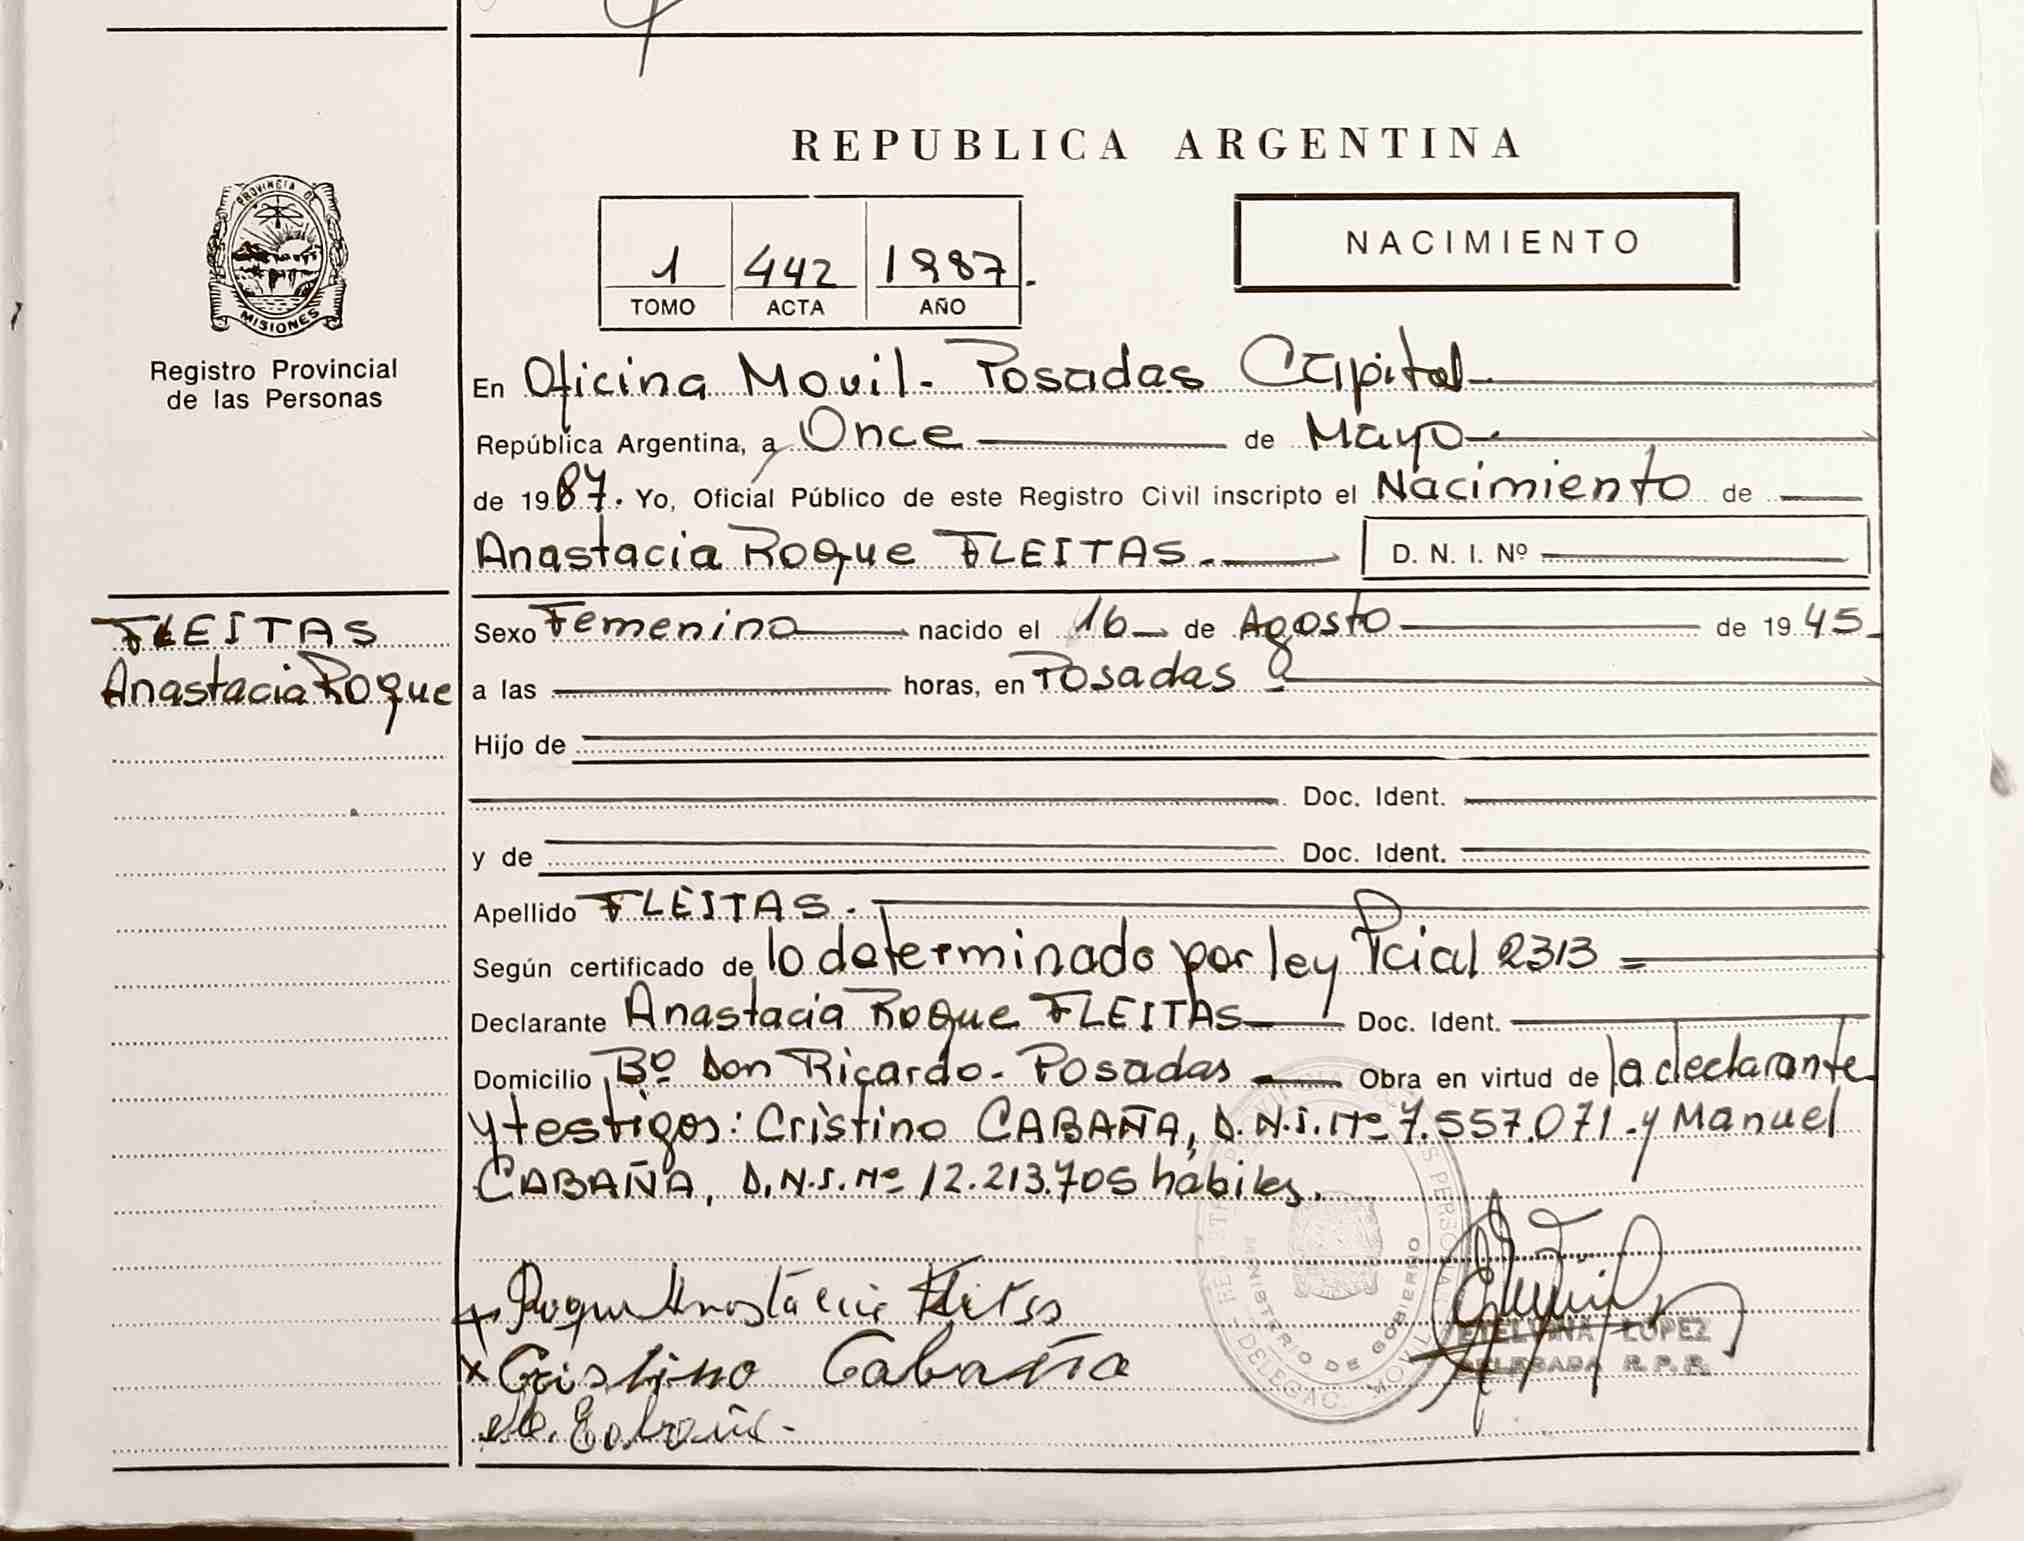 REPUBLICA ARGENTINA
PROVINCIA DE
MISIONES
Registro Provincial
de las Personas
1 442 1987.
TOMO ACTA AÑO
NACIMIENTO
En Oficina Movil - Posadas Capital
República Argentina, a Once de Mayo
de 1987. Yo, Oficial Público de este Registro Civil inscripto el Nacimiento de
Anastacia Roque FLEITAS. D. N. I. Nº
FLEITAS
Anastacia Roque
Sexo Femenino nacido el 16 de Agosto de 1945
a las horas, en Posadas
Hijo de
Doc. Ident.
y de Doc. Ident.
Apellido FLEITAS.
Según certificado de lo determinado por ley Pcial 2313 =
Declarante Anastacia Roque FLEITAS Doc. Ident.
Domicilio Bº Don Ricardo - Posadas Obra en virtud de la declarante
y testigos: Cristino CABAÑA, D.N.I. Nº 7.557.071 - y Manuel
CABAÑA, D.N.I. Nº 12.213.705 hábiles.
Roque Anastacia Fleitas
x Cristino Cabaña
MINISTERIO DE GOBIERNO
ETELVINA LOPEZ
DELEGADA R. P. P.